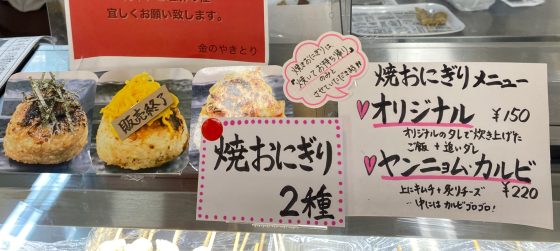 宜しくお願い致します。
金のやきとり
販売終了
焼おにぎりは、
焼いてお持ち帰り
のみと
させていただきます!!
焼おにぎり
2種
焼おにぎりメニュー
オリジナル ¥150
オリジナルのタレで炊き上げた
ご飯 + 追いダレ
ヤンニョム・カルビ
¥220
上にキムチ + 炙りチーズ
…中にはカルビゴロゴロ!